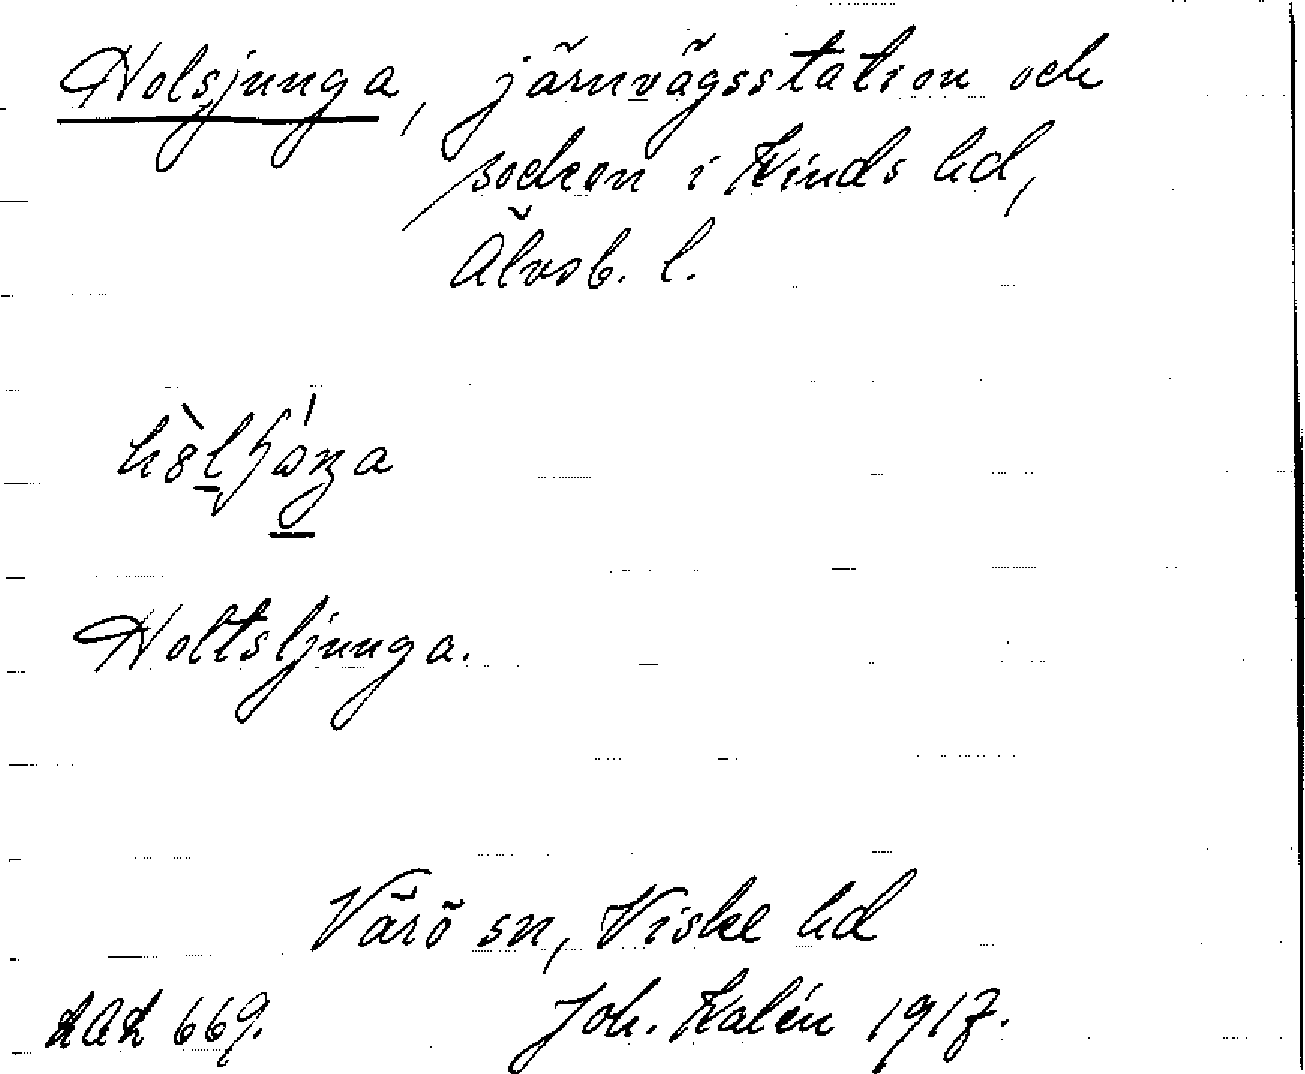 Holsjunga, järnvägsstation och
socken i Kinds hd,
Älvsb. l.
Holtsljunga.
Värö sn, Viske hd
LAL 669. Joh. Kalén 1917.